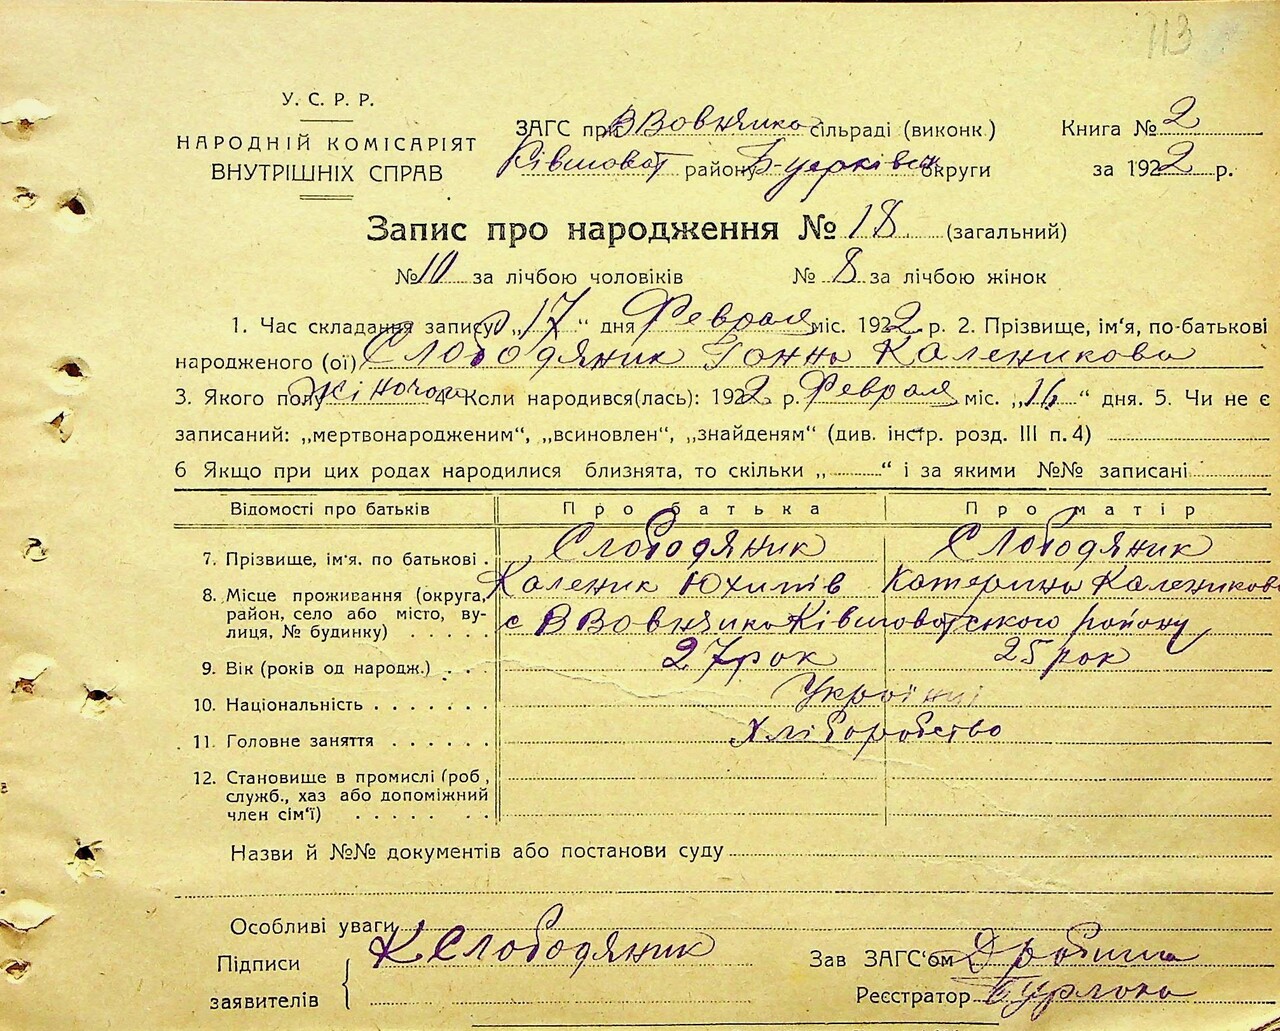 113
У. С. Р. Р.
НАРОДНІЙ КОМІСАРІЯТ
ВНУТРІШНІХ СПРАВ
ЗАГС при ВВовнянка сільраді (виконк.)
Ківшоват району Б-церківськ округи
Книга № 2
за 1922 р.
Запис про народження № 18 (загальний)
№ 10 за лічбою чоловіків № 8 за лічбою жінок
1. Час складання запису „17“ дня Февраля міс. 1922 р. 2. Прізвище, ім'я, по-батькові
народженого (ої) Слободяник Ганна Каленикова
3. Якого полу жіночого 4. Коли народився(лась): 1922 р. Февраля міс. „16“ дня. 5. Чи не є
записаний: „мертвонародженим“, „всиновлен“, „знайденям“ (див. інстр. розд. III п. 4)
6 Якщо при цих родах народилися близнята, то скільки „ “ і за якими №№ записані
Відомості про батьків Про батька Про матір
7. Прізвище, ім'я, по батькові Слободяник Слободяник
Каленик Юхимів Катерина Каленикова
8. Місце проживання (округа, район, село або місто, вулиця, № будинку) с ВВовнянка Ківшоватського району
9. Вік (років од народж.) 27 рок 25 рок
10. Національність Українці
11. Головне заняття Хліборобство
12. Становище в промислі (роб,
служб., хаз або допоміжний
член сім'ї)
Назви й №№ документів або постанови суду
Особливі уваги
Підписи
заявителів
К Слободяник
Зав ЗАГС'ом
Реєстратор